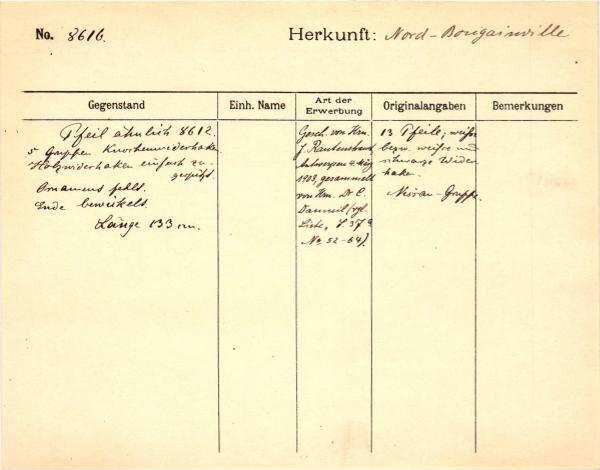 No. 8616. Herkunft: Nord-Bougainville
Gegenstand Einh. Name Art der Erwerbung Originalangaben Bemerkungen
Pfeil ähnlich 8612.
5 Gruppen Knochenwiederhaken
Holzwiderhaken einfach zu-
gespitzt
Ornament fehlt.
Ende bewickelt.
Länge 133 cm.
Gesch. von Hrn.
J.
Antwerpen
1903, gesammelt
von Hrn. Dr C.
Danneil (vgl.
Liste, S 37a
No 52-64).
13 Pfeile; weisse
bezw. weisse und
schwarze Wieder
haken.
Nissan-Gruppe.